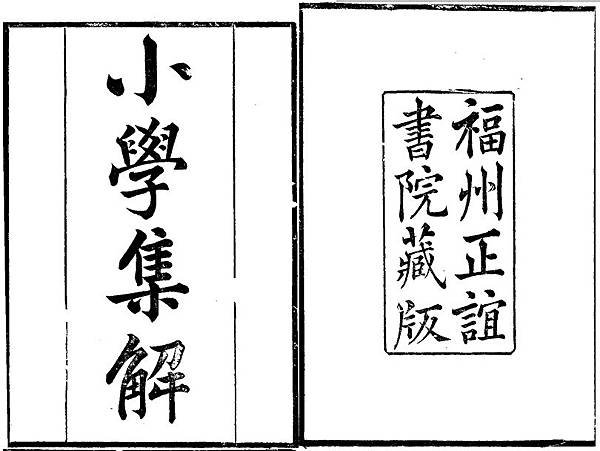 小學集解
福州正誼
書院藏版